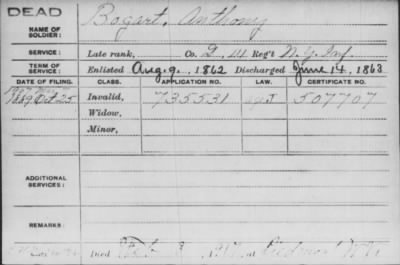 DEAD
Bogart, Anthony
NAME OF SOLDIER:
SERVICE: Late rank, Co. Reg't N.Y. Inf.
TERM OF SERVICE: Enlisted Aug. 9, 1862 Discharged June 14, 1863
DATE OF FILING. CLASS. APPLICATION NO. LAW. CERTIFICATE NO.
1889 Oct 25 Invalid, 735531 507707
Widow,
Minor,
ADDITIONAL SERVICES:
REMARKS:
Died at Piedmont N.Y.